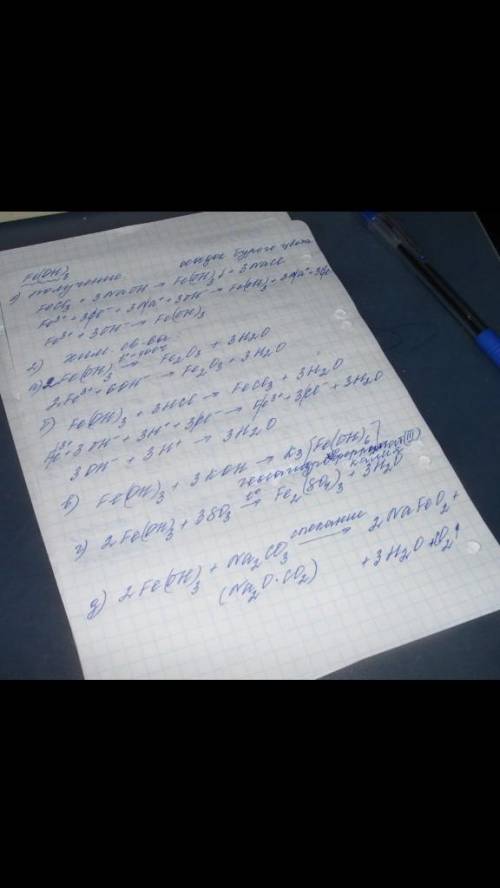 Fe(OH)₃
1) получение осадок бурого цвета
FeCl₃ + 3NaOH → Fe(OH)₃↓ + 3NaCl
Fe³⁺ + 3Cl⁻ + 3Na⁺ + 3OH⁻ → Fe(OH)₃ + 3Na⁺ + 3Cl⁻
Fe³⁺ + 3OH⁻ → Fe(OH)₃
2) хим. св-ва
а) 2Fe(OH)₃ → Fe₂O₃ + 3H₂O
2Fe³⁺ + 6OH⁻ → Fe₂O₃ + 3H₂O
б) Fe(OH)₃ + 3HCl → FeCl₃ + 3H₂O
Fe³⁺ + 3OH⁻ + 3H⁺ + 3Cl⁻ → Fe³⁺ + 3Cl⁻ + 3H₂O
3OH⁻ + 3H⁺ → 3H₂O
в) Fe(OH)₃ + 3KOH → K₃[Fe(OH)₆]
(III) калия
г) 2Fe(OH)₃ + 3SO₃ →t° Fe₂(SO₄)₃ + 3H₂O
д) 2Fe(OH)₃ + Na₂CO₃ спекание → 2NaFeO₂ +
(Na₂O·CO₂) + 3H₂O + CO₂↑